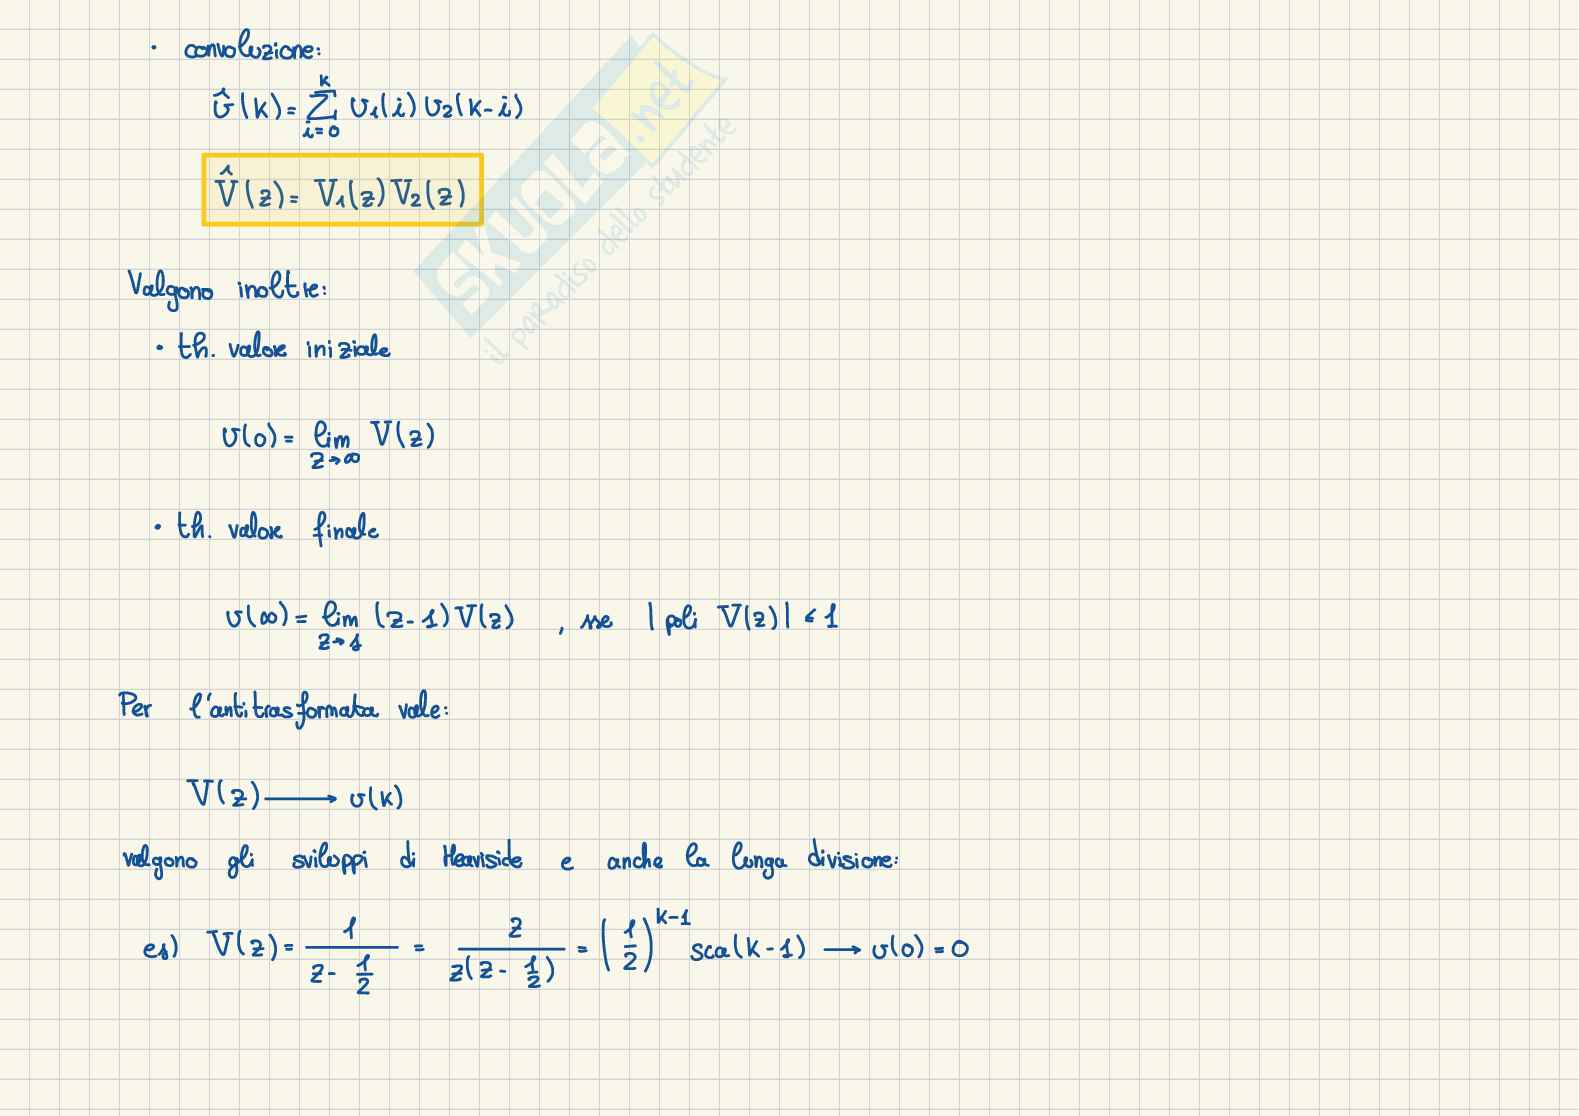 · convoluzione:
v̂(k) = Σ_{i=0}^{k} v₁(i) v₂(k-i)
V̂(z) = V₁(z) V₂(z)
SKUOLA.net
il paradiso dello studente
Valgono inoltre:
· th. valore iniziale
v(0) = lim_{z→∞} V(z)
· th. valore finale
v(∞) = lim_{z→1} (z-1) V(z) , se |poli V(z)| < 1
Per l'antitrasformata vale:
V(z) ⟶ v(k)
valgono gli sviluppi di Heaviside e anche la lunga divisione:
es) V(z) = 1/(z - 1/2) = z/(z(z - 1/2)) = (1/2)^{k-1} sca(k-1) ⟶ v(0) = 0